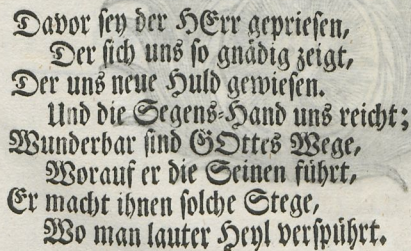 Davor sey der HErr gepriesen,
Der sich uns so gnädig zeigt,
Der uns neue Huld gewiesen.
Und die Segens-Hand uns reicht;
Wunderbar sind GOttes Wege,
Worauf er die Seinen führt,
Er macht ihnen solche Stege,
Wo man lauter Heyl verspührt.